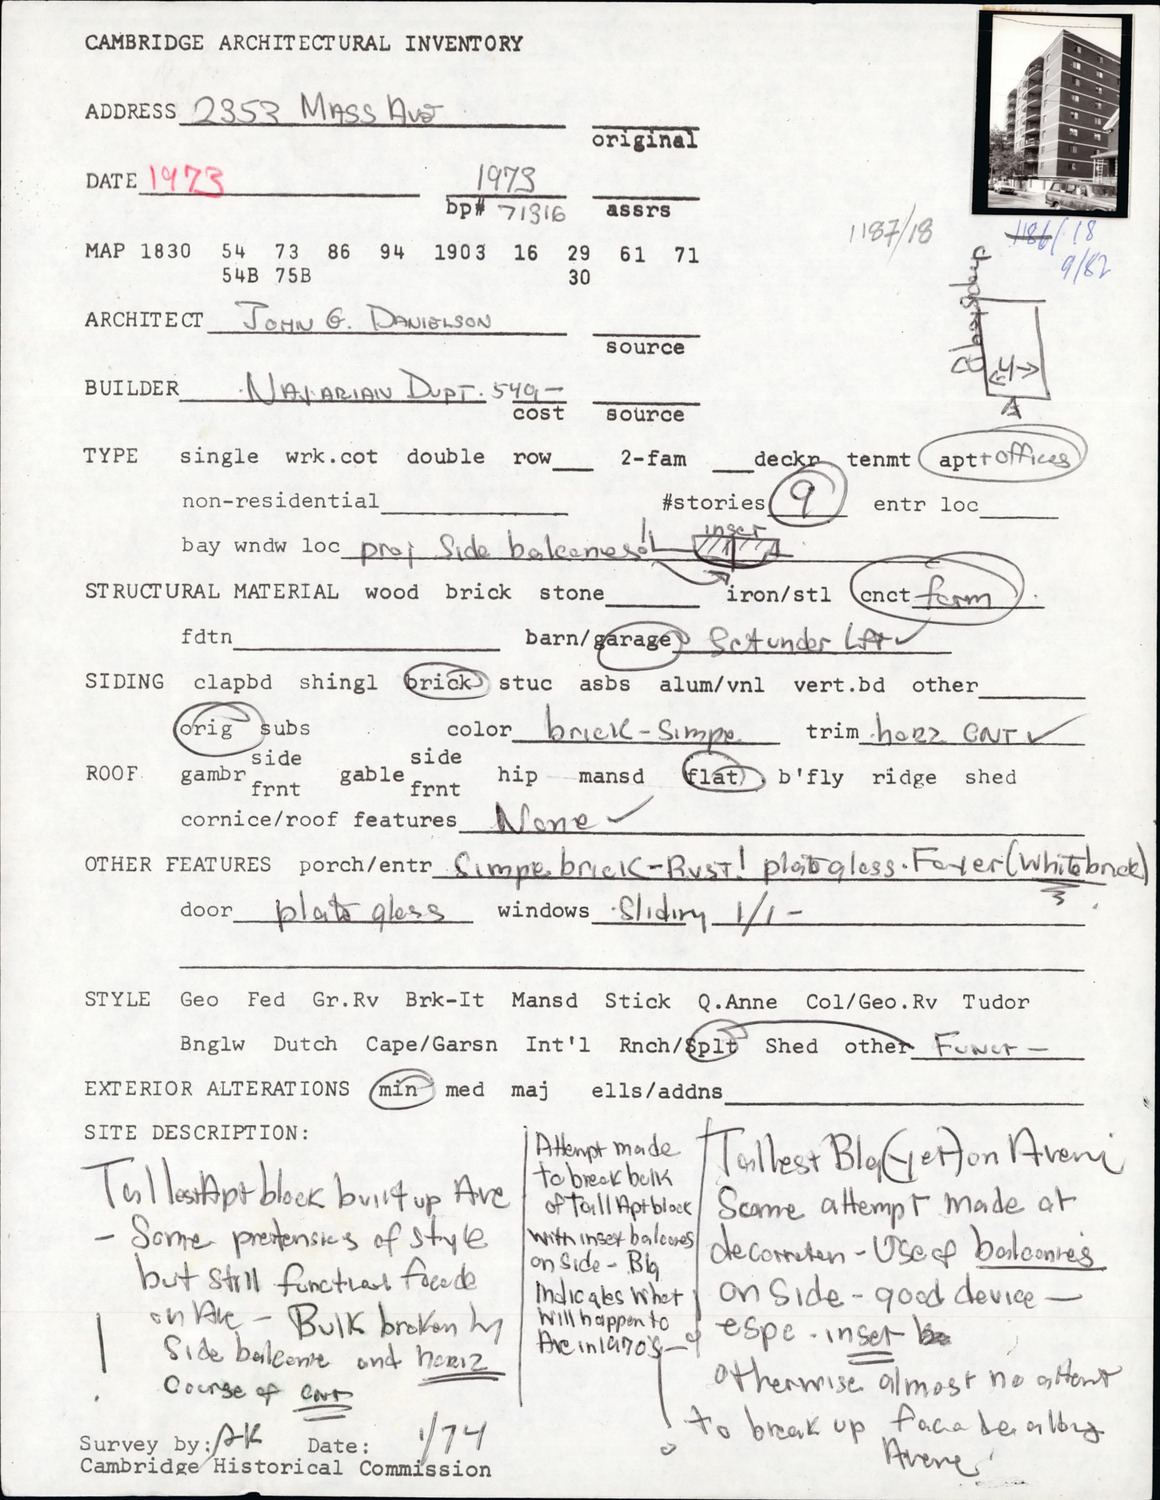 CAMBRIDGE ARCHITECTURAL INVENTORY
ADDRESS 2353 MASS AVE
original
DATE 1973 1973
bp# 71316 assrs
1187/18 1186/18
9/82
MAP 1830 54 73 86 94 1903 16 29 61 71
54B 75B 30
ARCHITECT JOHN G. DANIELSON
source
BUILDER NAJARIAN 549,-
cost source
4
A
TYPE single wrk.cot double row 2-fam deckr tenmt apt + offices
non-residential #stories 9 entr loc
inset
bay wndw loc proj side balconies
STRUCTURAL MATERIAL wood brick stone iron/stl cnct form
fdtn barn/garage Set under
SIDING clapbd shingl brick stuc asbs alum/vnl vert.bd other
orig subs color brick - Simpe trim horz CNT ✓
side side
ROOF gambr gable hip mansd flat b'fly ridge shed
frnt frnt
cornice/roof features None ✓
OTHER FEATURES porch/entr Simpe brick - Rust! plate glass. Foyer (White brick)
door plate glass windows Sliding 1/1 -
STYLE Geo Fed Gr.Rv Brk-It Mansd Stick Q.Anne Col/Geo.Rv Tudor
Bnglw Dutch Cape/Garsn Int'l Rnch/Splt Shed other Funct -
EXTERIOR ALTERATIONS min med maj ells/addns
SITE DESCRIPTION:
Tallest Apt block built up Ave
- Some pretensies of style
but still functional facade
on Ave - Bulk broken by
Side balconie and horiz
Course of CNT
Attempt made
to break bulk
of tall Apt block
with inset balcones
on Side - Blg
Indicates what
will happen to
Ave in 1970's -
Tallest Blg (yet) on Avenu
Some attempt made at
decoration - Use of balconies
on Side - good device -
espc. inset
otherwise almost no attempt
to break up facade along
Avenue
Survey by: AK Date: 1/74
Cambridge Historical Commission